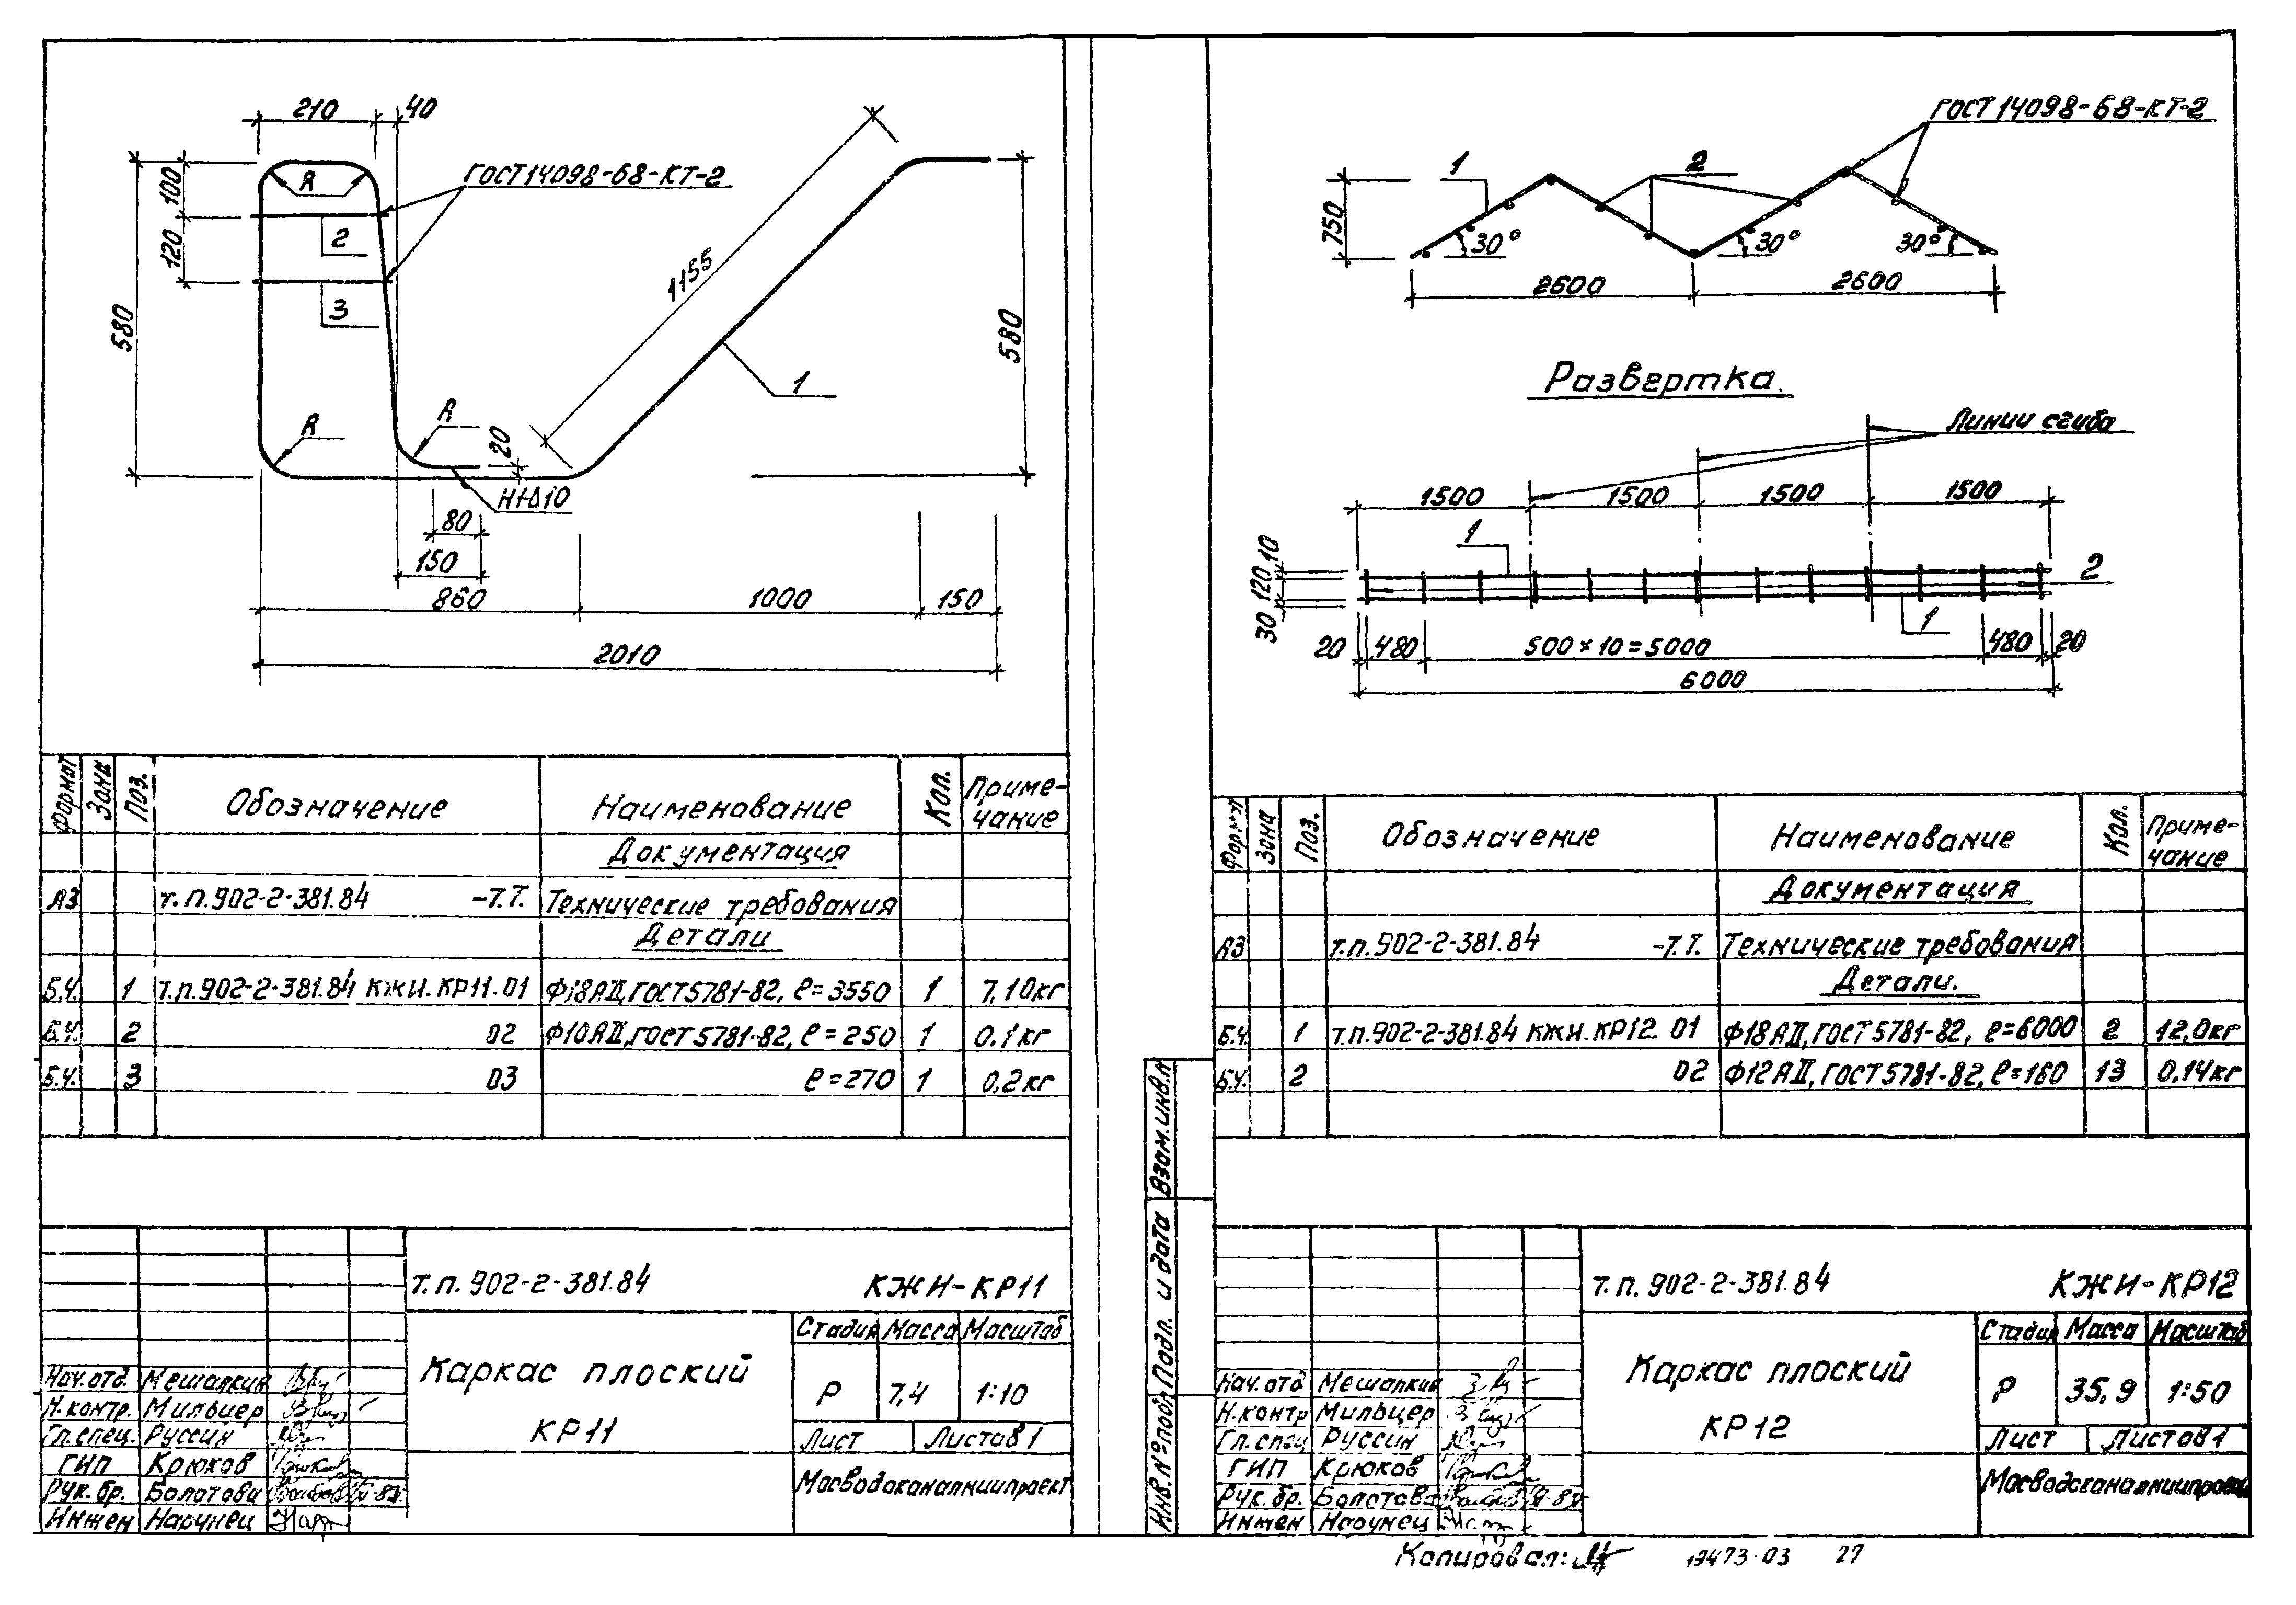 210
40
ГОСТ 14098-68-КТ-2
R
100
2
120
3
580
1155
1
580
R
R
20
Н1-Δ10
80
150
860
1000
150
2010
Формат
Зона
Поз.
Обозначение
Наименование
Кол.
Приме-
чание
Документация
А3 т.п.902-2-381.84 -Т.Т. Технические требования
Детали
Б.Ч. 1 т.п.902-2-381.84 КЖИ.КР11.01 Ф18АII, ГОСТ 5781-82, ℓ=3550 1 7,10кг
Б.Ч. 2 02 Ф10АII, ГОСТ 5781-82, ℓ=250 1 0,1кг
Б.Ч. 3 03 ℓ=270 1 0,2кг
т.п. 902-2-381.84 КЖИ-КР11
Каркас плоский
КР11
Стадия Масса Масштаб
Р 7,4 1:10
Лист Листов 1
Мосводоканалниипроект
Нач.отд. Мешалкин
Н.контр. Мильцер
Гл.спец. Руссин
ГИП Крюков
Рук.бр. Болотова
Инжен Нарунец
ГОСТ 14098-68-КТ-2
1
2
750
30°
30°
30°
2600
2600
Развертка.
Линии сгиба
1500
1500
1500
1500
1
10
120
30
2
1
20
480
500×10=5000
480
20
6000
Формат
Зона
Поз.
Обозначение
Наименование
Кол.
Приме-
чание
Документация
А3 т.п.902-2-381.84 -Т.Т. Технические требования
Детали.
Б.Ч. 1 т.п.902-2-381.84 КЖИ.КР12.01 Ф18АII, ГОСТ 5781-82, ℓ=6000 2 12,0кг
Б.Ч. 2 02 Ф12АII, ГОСТ 5781-82, ℓ=160 13 0,14кг
Взам.инв.№
Подп. и дата
Инв.№подл.
т.п. 902-2-381.84 КЖИ-КР12
Каркас плоский
КР12
Стадия Масса Масштаб
Р 35,9 1:50
Лист Листов 1
Мосводоканалниипроект
Нач.отд Мешалкин
Н.контр Мильцер
Гл.спец Руссин
ГИП Крюков
Рук.бр. Болотова
Инжен Нарунец
Копировал:
19473-03 27